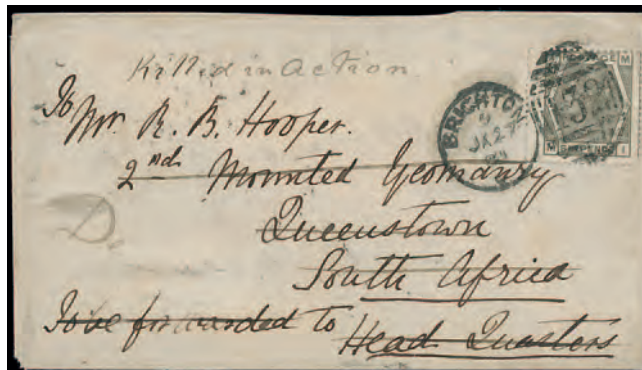 Killed in action
To Mr. R. B. Hooper.
2nd Mounted Yeomanry
Queenstown
South Africa
To be forwarded to
Head Quarters
D.
BRIGHTON
JA 27
M
SIXPENCE
M I